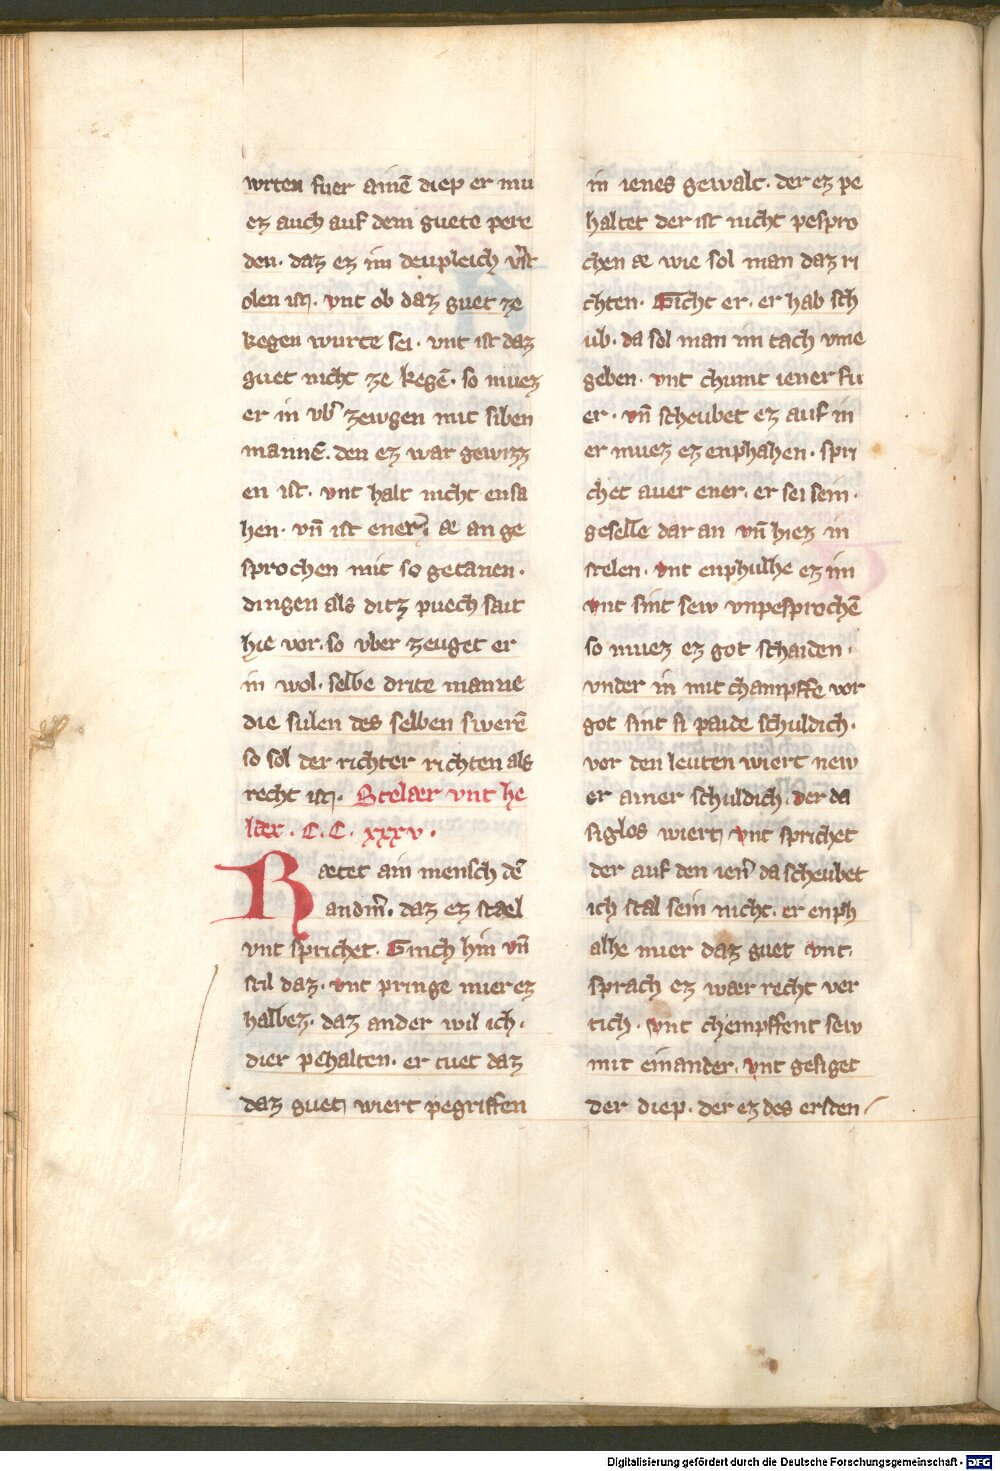 wrten fuer ainē diep er mu
ez auch auf dem guete pere
den. daz ez im deupleich v̄st
olen ist. vnt ob daz guet ze
kegen wurte sei. vnt ist daz
guet nicht ze kegē. so muez
er in vb̄ zewgen mit siben
mannē. den ez war gewizz
en ist. vnt halt nicht ensa
hen. vn̄ ist ener æ an ge
sprochen mit so getanen.
dingen als ditz puech sait
hie vor. so vber zeuget er
in wol. selbe drite manne
die sulen des selben swerē
so sol der richter richten als
recht ist. Stelær vnt he
lær. C. C. xxxv.
Rætet ain mensch dē
andm̄. daz ez stael
vnt sprichet. Ginch hin vn̄
stil daz. vnt pringe mier ez
halbez. daz ander wil ich.
dier pehalten. er tuet daz
daz guet wiert pegriffen
in ienes gewalt. der ez pe
haltet der ist nicht pespro
chen æ wie sol man daz ri
chten. Gicht er. er hab sch
ub. da sol man im tach vme
geben. vnt chumt iener fu
er. vn̄ scheubet ez auf in
er muez ez enphahen. spri
chet auer ener. er sei sein.
geselle dar an vn̄ hiez in
stelen. vnt enphulhe ez im
vnt sint sew vnpesprochē
so muez ez got schaiden.
vnder in mit champffe vor
got sint si paide schuldich.
vor den leuten wiert new
er ainer schuldich. der da
siglos wiert vnt sprichet
der auf den ien̄ da scheubet
ich stal sein nicht. er enph
alhe mier daz guet vnt.
sprach ez wær recht ver
tich. vnt chempffent sew
mit einander. vnt gesiget
der diep. der ez des ersten
Digitalisierung gefördert durch die Deutsche Forschungsgemeinschaft - DFG